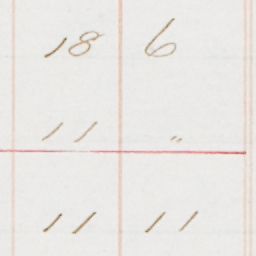 18 6
11 "
11 11